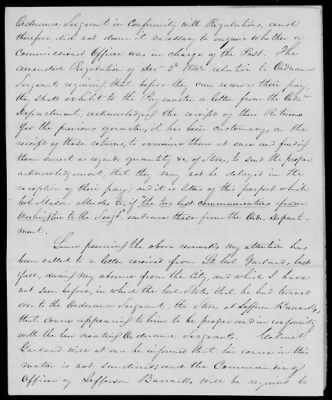 Ordnance Sergeant in Conformity with Regulations, and
therefore did not deem it necessary to inquire whether a
Commissioned Officer was in charge of the Post. The
amended Regulation of Decr 2d relative to Ordnance
Sergeant requiring that before they can receive their pay,
they shall exhibit to the Paymaster a letter from the Ordn.
Department, acknowledging the receipt of their Returns
for the previous quarter, it has been customary, on the
receipt of those returns, to examine them at once and finding
them correct as regards quantity &c of Stores, to send the proper
acknowledgement, that they may not be delayed in the
reception of their pay; and it is letters of this purport which
Col. Mason alludes to, if the two last communications from
Washington to the Sergt. embrace those from the Ordn. Depart-
ment.
Since penning the above remarks, my attention has
been called to a letter received from Lt. Col. Garland, last
, during my absence from the City, and which I have
not seen before, in which the Col. states that he had turned
over to the Ordnance Sergeant, the Stores, at Jefferson Barracks,
that course appearing to him to be proper and in conformity
with the law creating Ordnance Sergeants. Colonel
Garland will at once be informed that his course in this
matter is not sanctioned; and the Commanding
Officer of Jefferson Barracks will be required to